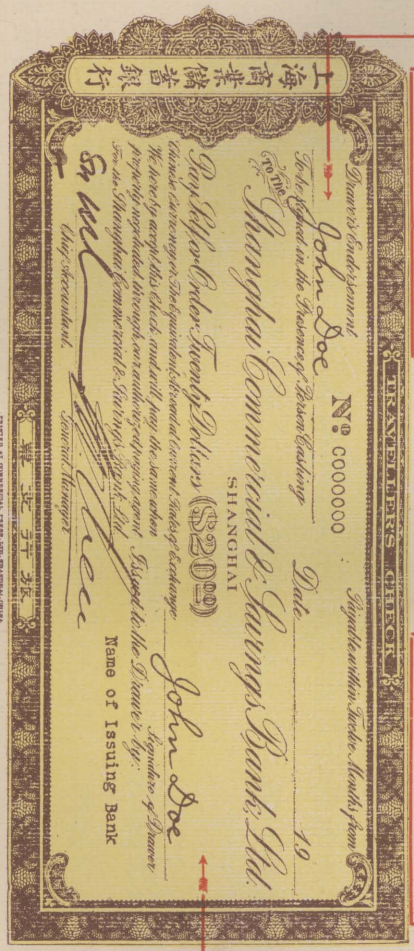 上海商業儲蓄銀行
TRAVELLERS CHECK
Payable within Twelve Months from
Date 19
Nº C000000
Drawer's Endorsement
John Doe
To be Signed in the Presence of Person Cashing
TO THE
Shanghai Commercial & Savings Bank, Ltd.
SHANGHAI
Pay Self or Order Twenty Dollars ($20.00)
Chinese Currency or The Equivalent thereof at Current Rates of Exchange
John Doe
Signature of Drawer
We hereby accept this Check and will pay the same when
properly negotiated through our authorized paying agent
For the Shanghai Commercial & Savings Bank, Ltd.
Issued to the Drawer by:
Name of Issuing Bank
Chief Accountant.
General Manager
票支行旅